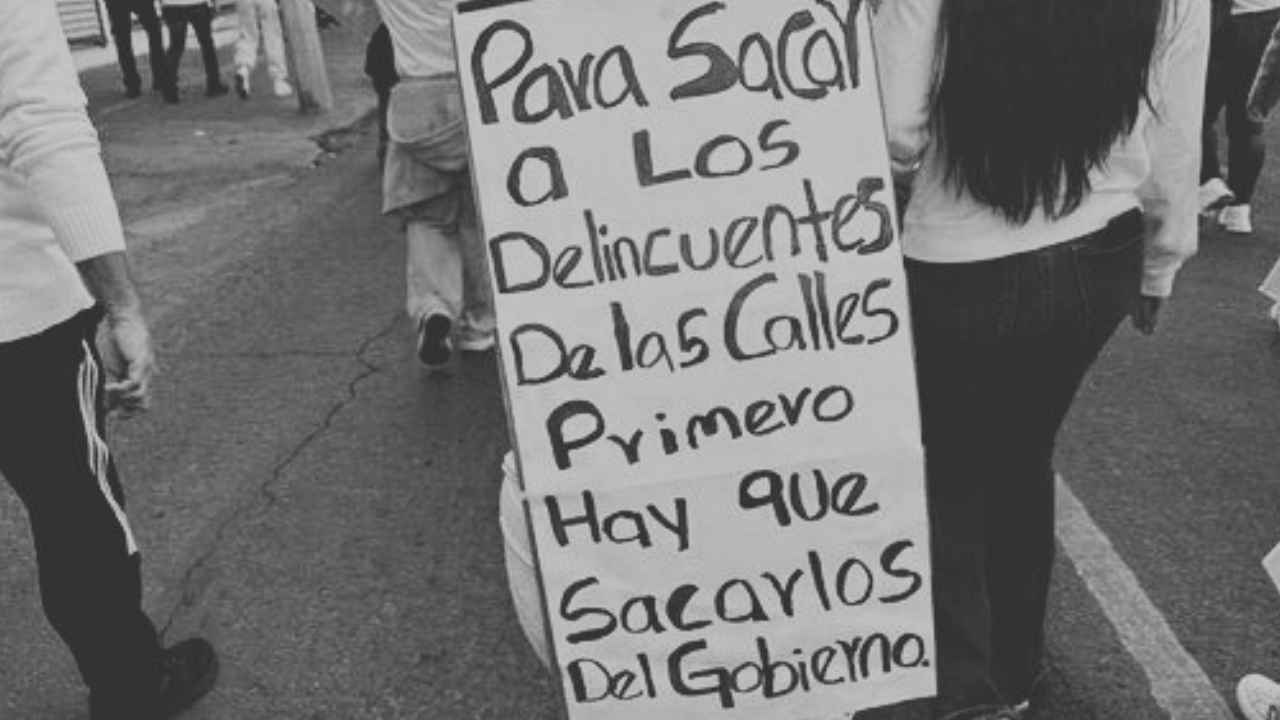 Para Sacar
a Los
Delincuentes
De las Calles
Primero
Hay que
Sacarlos
Del Gobierno.